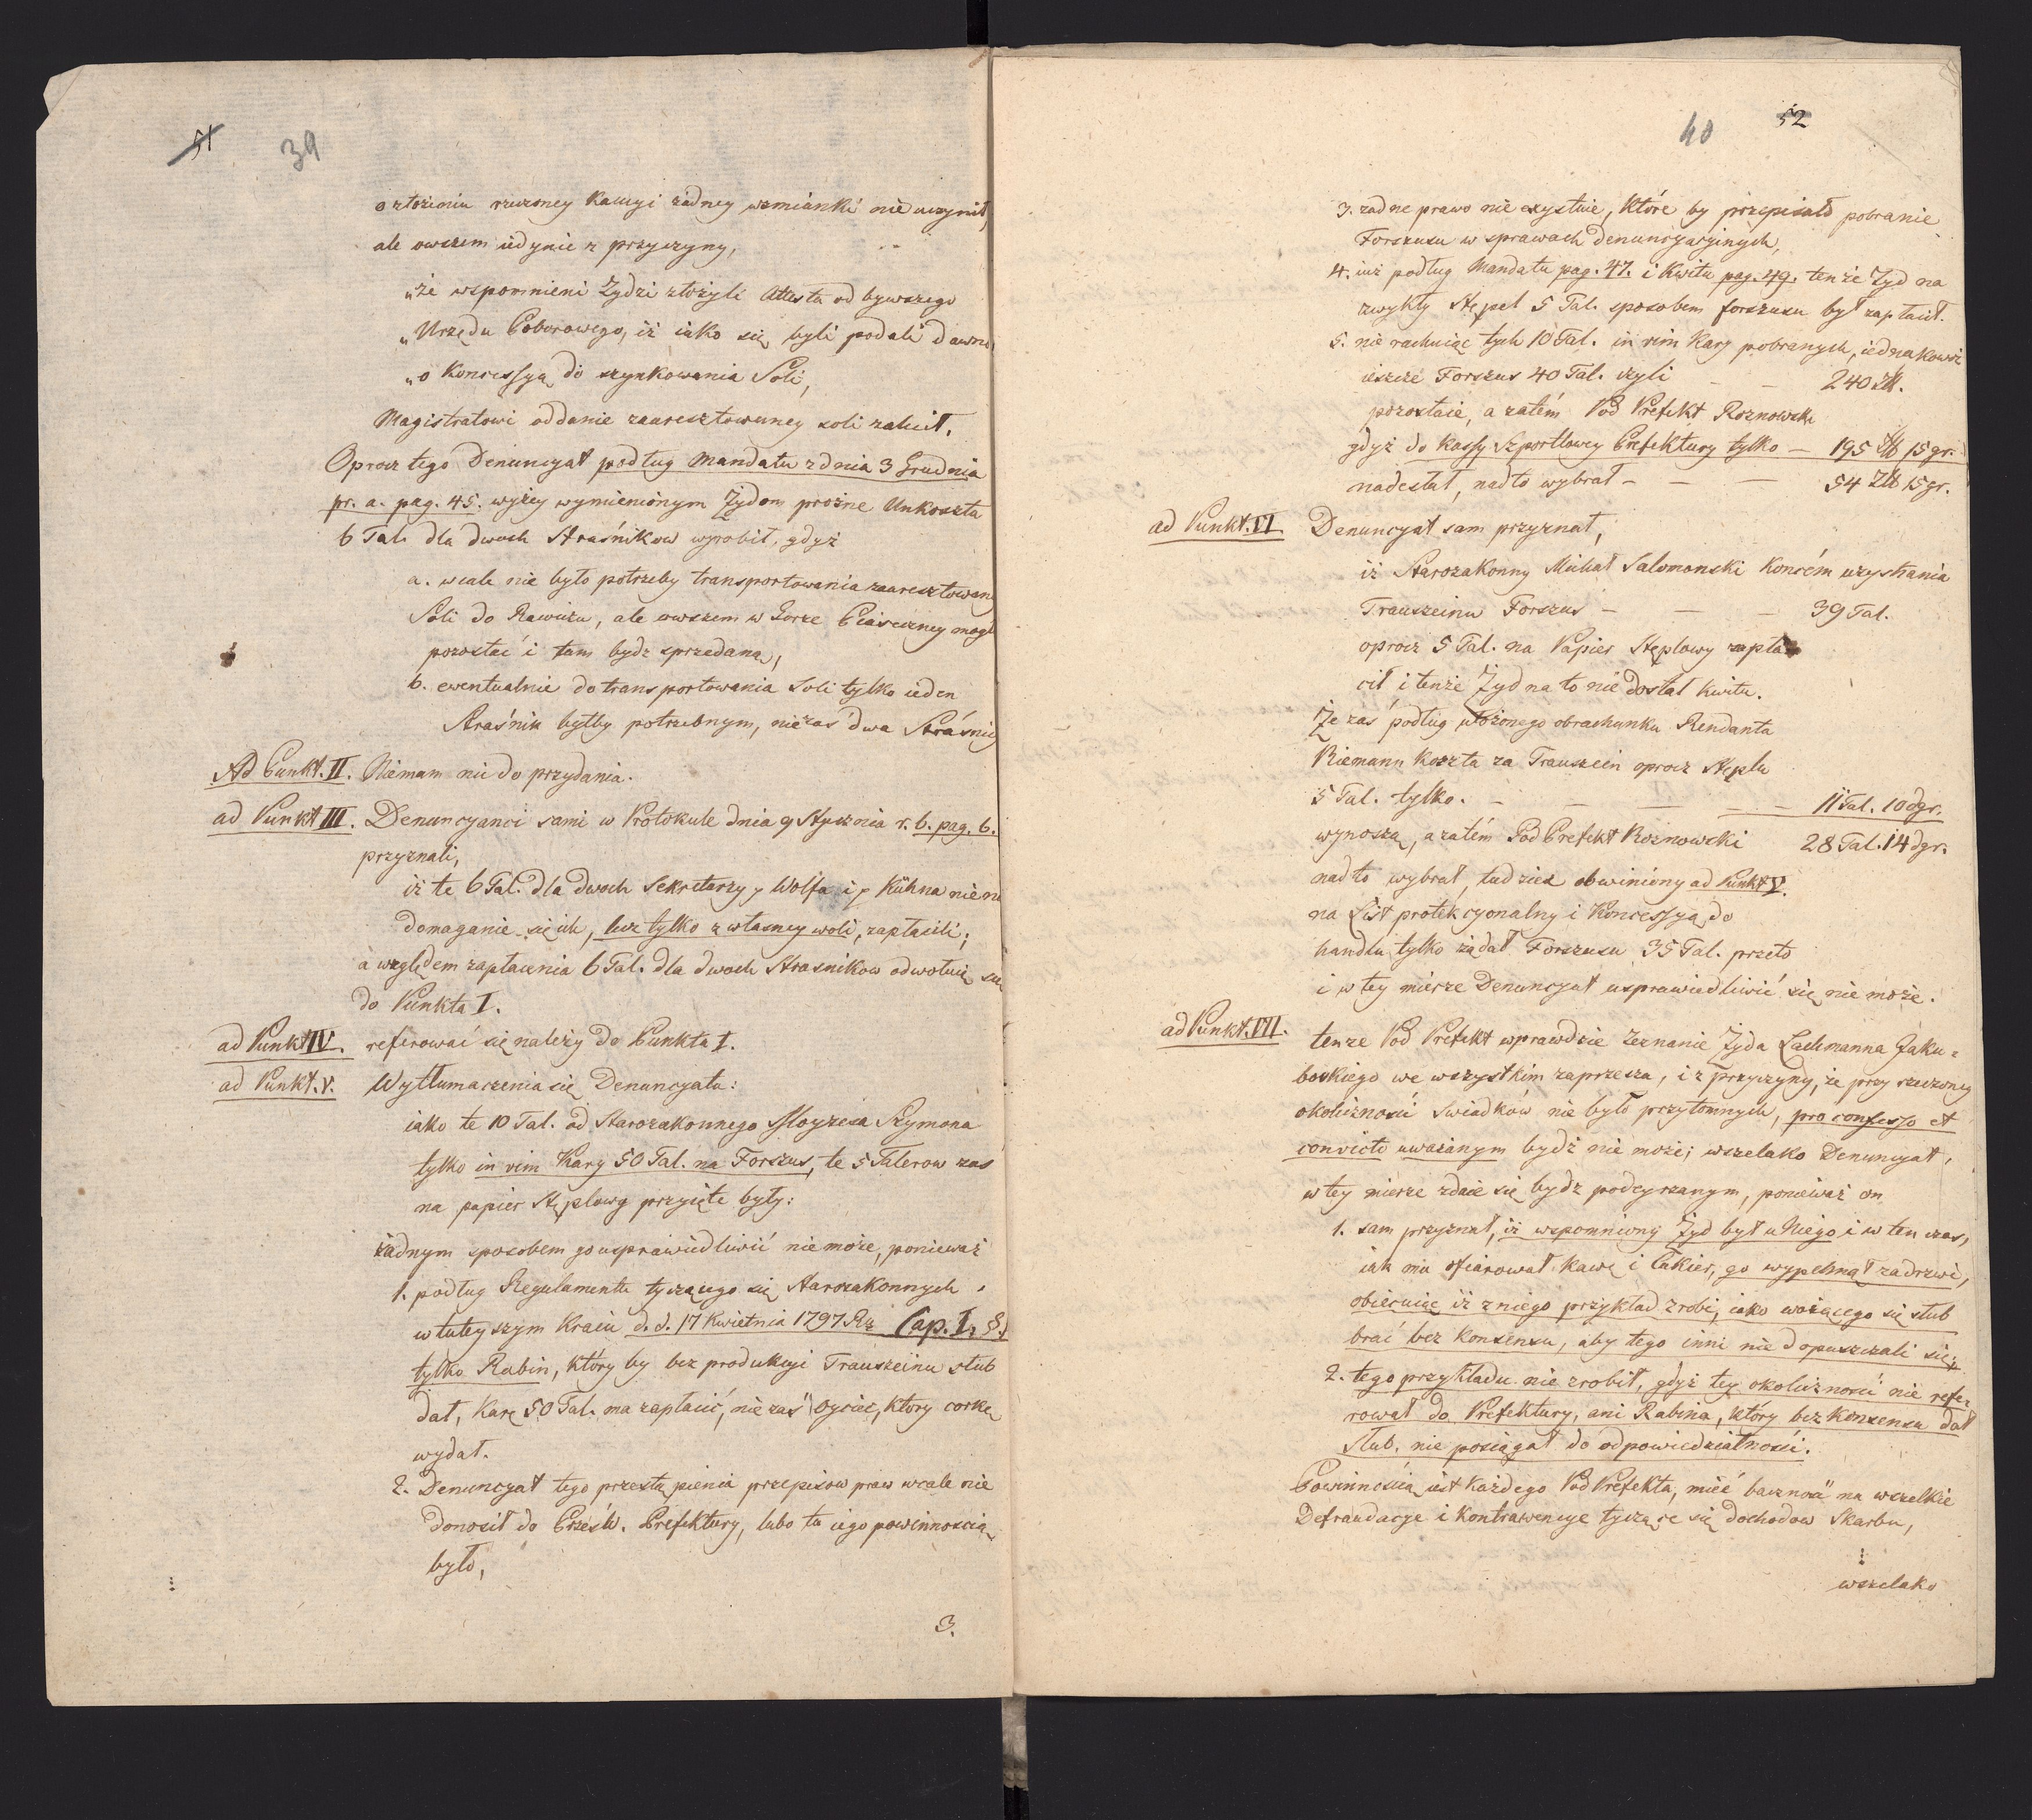 51 39
o złożeniu rzuzoney Kaucyi żadney wzmianki nie uczynił,
ale owszem iedynie z przyczyny,
„że wspomnieni Żydzi złożyli Attesta od bywszego
„Urzędu Poborowego, iż iako się byli podali dawno
„o Koncessyą do szynkowania Soli,
Magistratowi oddanie zaaresztowaney soli zalecił.
Oprocz tego Denuncyat podług Mandatu z dnia 3 Grudnia
pr. a. pag. 45. wyżey wymienionym Żydom prożne Unkoszta
6 Tal. dla dwoch Strażnikow wyrobił, gdyż
a. wcale nie było potrzeby transportowania zaaresztowaney
Soli do Rawicza, ale owszem w Gorze Piaseczney mogła
pozostać i tam bydz sprzedaną,
b. ewentualnie do transportowania Soli tylko ieden
Straśnik byłby potrzebnym, nie zaś dwa Straśnicy
Ad Punkt. II. Niemam nic do przydania.
ad Punkt III. Denuncyanci sami w Protokule dnia 9 Stycznia r. b. pag. 6.
przyznali,
iż te 6 Tal. dla dwoch Sekretarzy p Wolfa i p Kühna nie na
domaganie się ich, lecz tylko z własney woli, zapłacili;
a względem zapłacenia 6 Tal. dla dwoch Strasnikow odwołuię się
do Punkta I.
ad Punkt IV. referować się należy do Punkta I.
ad Punkt. V. Wytłumaczenia się Denuncyata:
iako te 10 Tal. od Starozakonnego Moyzesa Szymona
tylko in vim Kary 50 Tal. na Forszus, te 5 Talerow zas
na papier Stęplowy przyięte były:
żadnym sposobem go usprawiedliwić nie może, ponieważ
1. podług Regulamentu tyczącego się Starozakonnych
w tuteyszym Kraiu d. d. 17 Kwietnia 1797 Rz Cap. I. §.
tylko Rabin, który by bez produkcyi Trauszeinu slub
dał, Karę 50 Tal. ma zapłacić, nie zaś Oyciec, ktory corkę
wydał.
2. Denuncyat tego przestąpienia przepisow praw wcale nie
donosił do Prześw. Prefektury, lubo to iego powinnoscią
było,
3.
40 52
3. żadne prawo nie exystuie, które by przepisało pobranie
Forszusu w sprawach denuncyacyinych,
4. iuż podług Mandatu pag. 47. i Kwitu pag. 49. tenże Żyd na
zwykły Stępel 5 Tal. sposobem forszusu był zapłacił.
5. nie rachuiąc tych 10 Tal. in vim Kary pobranych, iednakowoż
ieszcze Forszus 40 Tal. czyli — — 240 Zł.
pozostaie, a zatém Pod Prefekt Roznowski
gdyż do Kassy Szportlowey Prefektury tylko — 195 Zł 15 gr.
nadesłał, nadto wybrał — — — 54 Zł 15 gr.
ad Punkt. VI. Denuncyat sam przyznał,
iż Starozakonny Michał Salomonski Koncém uzyskania
Trauszeinu Forszus — — — 39 Tal.
oprocz 5 Tal. na Papier Stęplowy zapła-
cił i tenże Żyd na to nie dostał kwitu.
Że zaś podług złożonego obrachunku Rendanta
Riemann koszta za Trauszein oprocz Stęplu
5 Tal. tylko. — — — — — 11 Tal. 10 dgr.
wynoszą, a zatém Pod Prefekt Roznowski 28 Tal. 14 dgr.
nadto wybrał, tudziesz obwiniony ad Punkt V.
na List protekcyonalny i Koncessyą do
handlu tylko żądał Forszusu 35 Tal. przeto
i w tey mierze Denuncyat usprawiedliwić się nie może.
ad Punkt. VII. tenze Pod Prefekt wprawdzie Zeznanie Żyda Lachmanna Jaku-
boskiego we wszystkim zaprzesza, i z przyczyny, że przy rzeczoney
okoliznosci Swiadków nie było przytomnych, pro confesso et
convicto uważanym bydź nie może; wszelako Denuncyat,
w tey mierze zdaie się bydz podeyrzanym, ponieważ on
1. sam przyznał, iż wspomniony Żyd był u Niego i w ten czas,
iak mu ofiarował Kawę i Cukier, go wypchnął za drzwi,
obiecuiąc iż z niego przykład zrobi, iako ważącego się slub
brać bez Konsensu, aby tego inni nie dopuszczali się;
2. tego przykładu nie zrobił, gdyż tey okoliznosci nie refe-
rował do Prefektury, ani Rabina, który bez Konsensu dał
slub, nie posiągał do odpowiedzialnosci.
Powinnoscią iest każdego Pod Prefekta, mieć bacznosć na wszelkie
Defraudacye i Kontrawencye tyczące się dochodow Skarbu,
wszelako